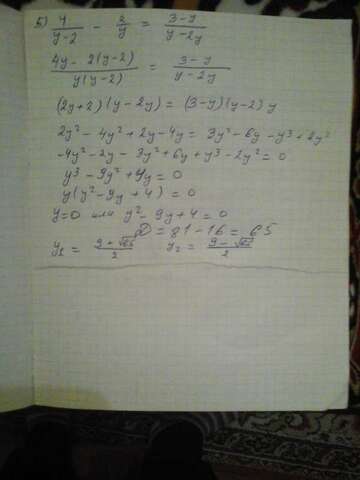 Б) 4/(y-2) - 2/y = (3-y)/(y-2y)
(4y - 2(y-2))/(y(y-2)) = (3-y)/(y-2y)
(2y+2)(y-2y) = (3-y)(y-2)y
2y² - 4y² + 2y - 4y = 3y² - 6y - y³ + 2y²
-4y² - 2y - 3y² + 6y + y³ - 2y² = 0
y³ - 9y² + 4y = 0
y(y² - 9y + 4) = 0
y=0 или y² - 9y + 4 = 0
D = 81 - 16 = 65
y₁ = (9+√65)/2 y₂ = (9-√65)/2